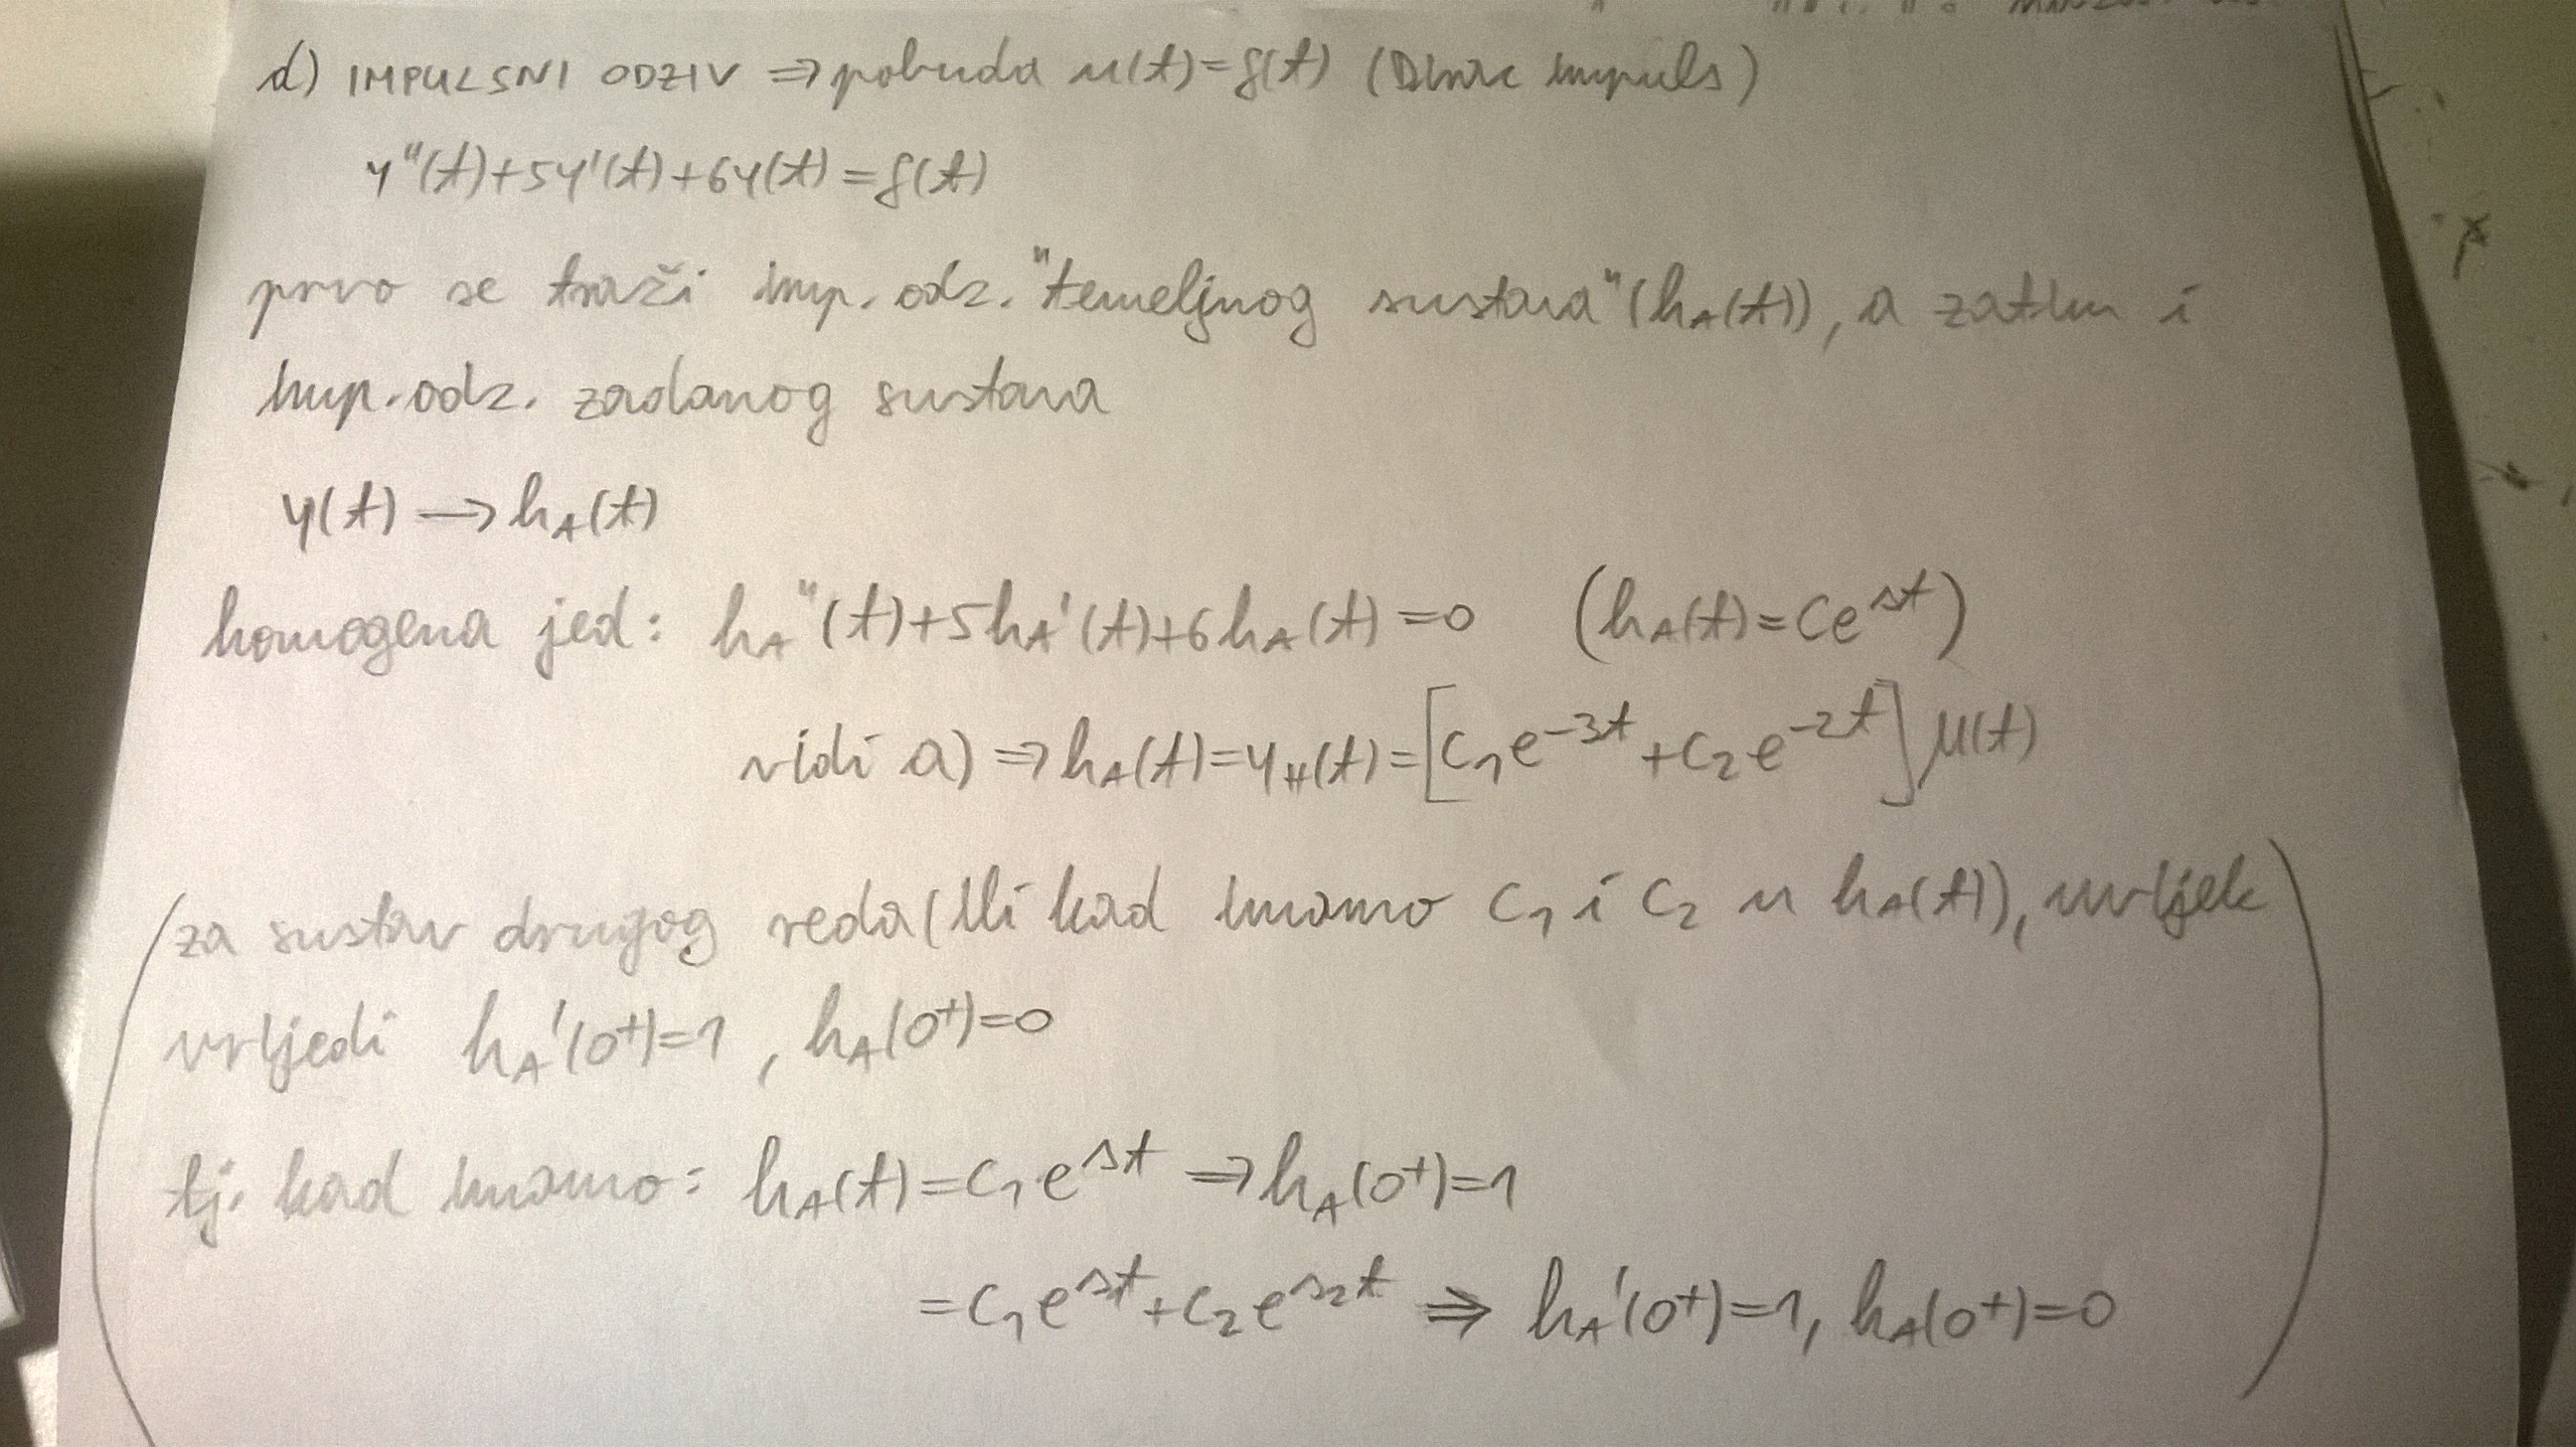 d) IMPULSNI ODZIV ⇒ pobuda u(t)=δ(t) (Dirac impuls)
y''(t)+5y'(t)+6y(t)=δ(t)
prvo se traži imp. odz. "temeljnog sustava" (hA(t)), a zatim i
imp. odz. zadanog sustava
y(t) → hA(t)
homogena jed: hA''(t)+5hA'(t)+6hA(t)=0 (hA(t)=Ce^st)
vidi a) ⇒ hA(t)=yH(t)=[C1e^-3t+C2e^-2t]μ(t)
(za sustav drugog reda (ili kad imamo C1 i C2 u hA(t)), uvijek
vrijedi hA'(0+)=1, hA(0+)=0
tj. kad imamo: hA(t)=C1e^st ⇒ hA(0+)=1
=C1e^s1t+C2e^s2t ⇒ hA'(0+)=1, hA(0+)=0)